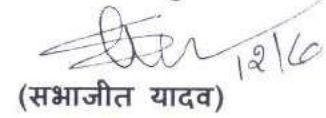 12/6
(सभाजीत यादव)